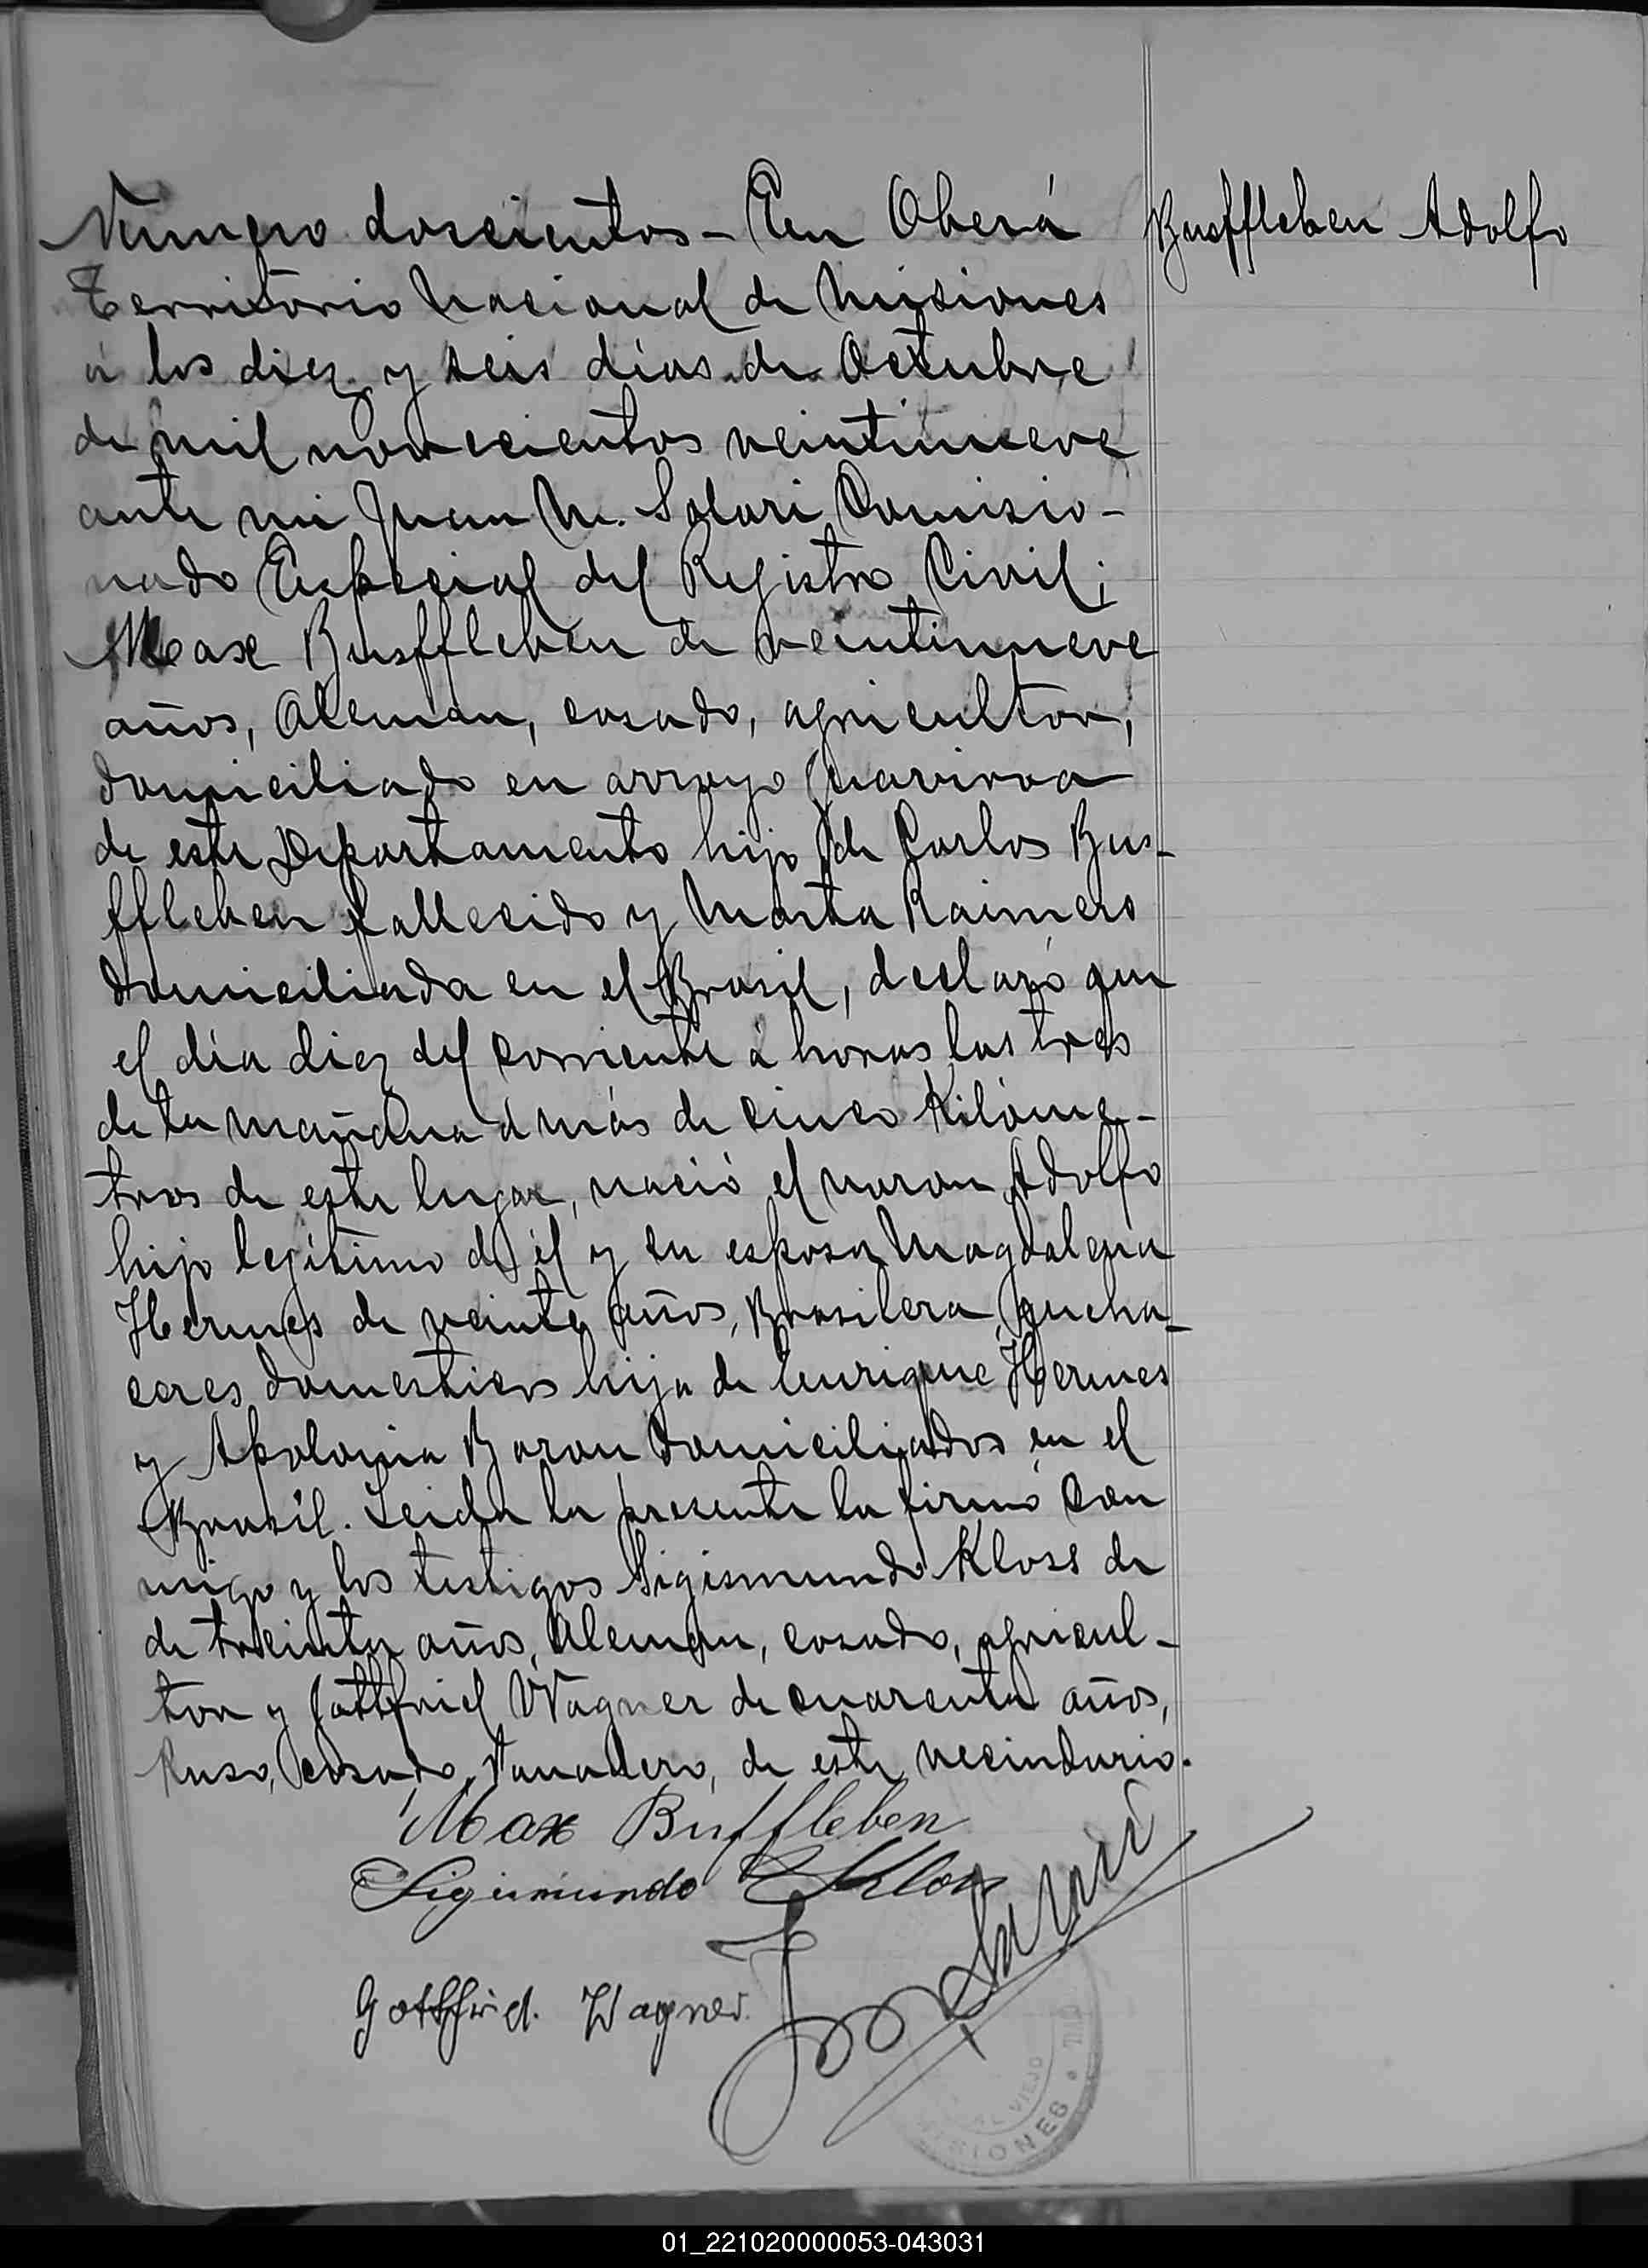 Número doscientos - En Oberá
Busffleben Adolfo
Territorio Nacional de Misiones
á los diez y seis días de Octubre
de mil novecientos veintinueve
ante mi Juan M. Solari Comisio-
nado Especial del Registro Civil;
Max Busffleben de veintinueve
años, Aleman, casado, agricultor,
domiciliado en arroyo Guavirova
de este Departamento hijo de Carlos Bus-
ffleben fallecido y Marta Raimers
domiciliada en el Brasil, declaró que
el día diez del corriente á horas las tres
de la mañana á más de cinco Kilóme-
tros de este lugar, nació el varon Adolfo
hijo legítimo de él y su esposa Magdalena
Hermes de veinte años, Brasilera, queha-
ceres domesticos hija de Enrique Hermes
y Apolonia Baron domiciliados en el
Brasil. Leida la presente la firmó con
migo y los testigos Sigismundo Kloss de
de treinta años, Aleman, casado, agricul-
tor y Gottfried Wagner de cuarenta años,
Ruso, casado, de este vecindario.
Max Buffleben
Sigismundo Kloss
Gottfried. Wagner.
VIEJO
MISIONES
01_221020000053-043031